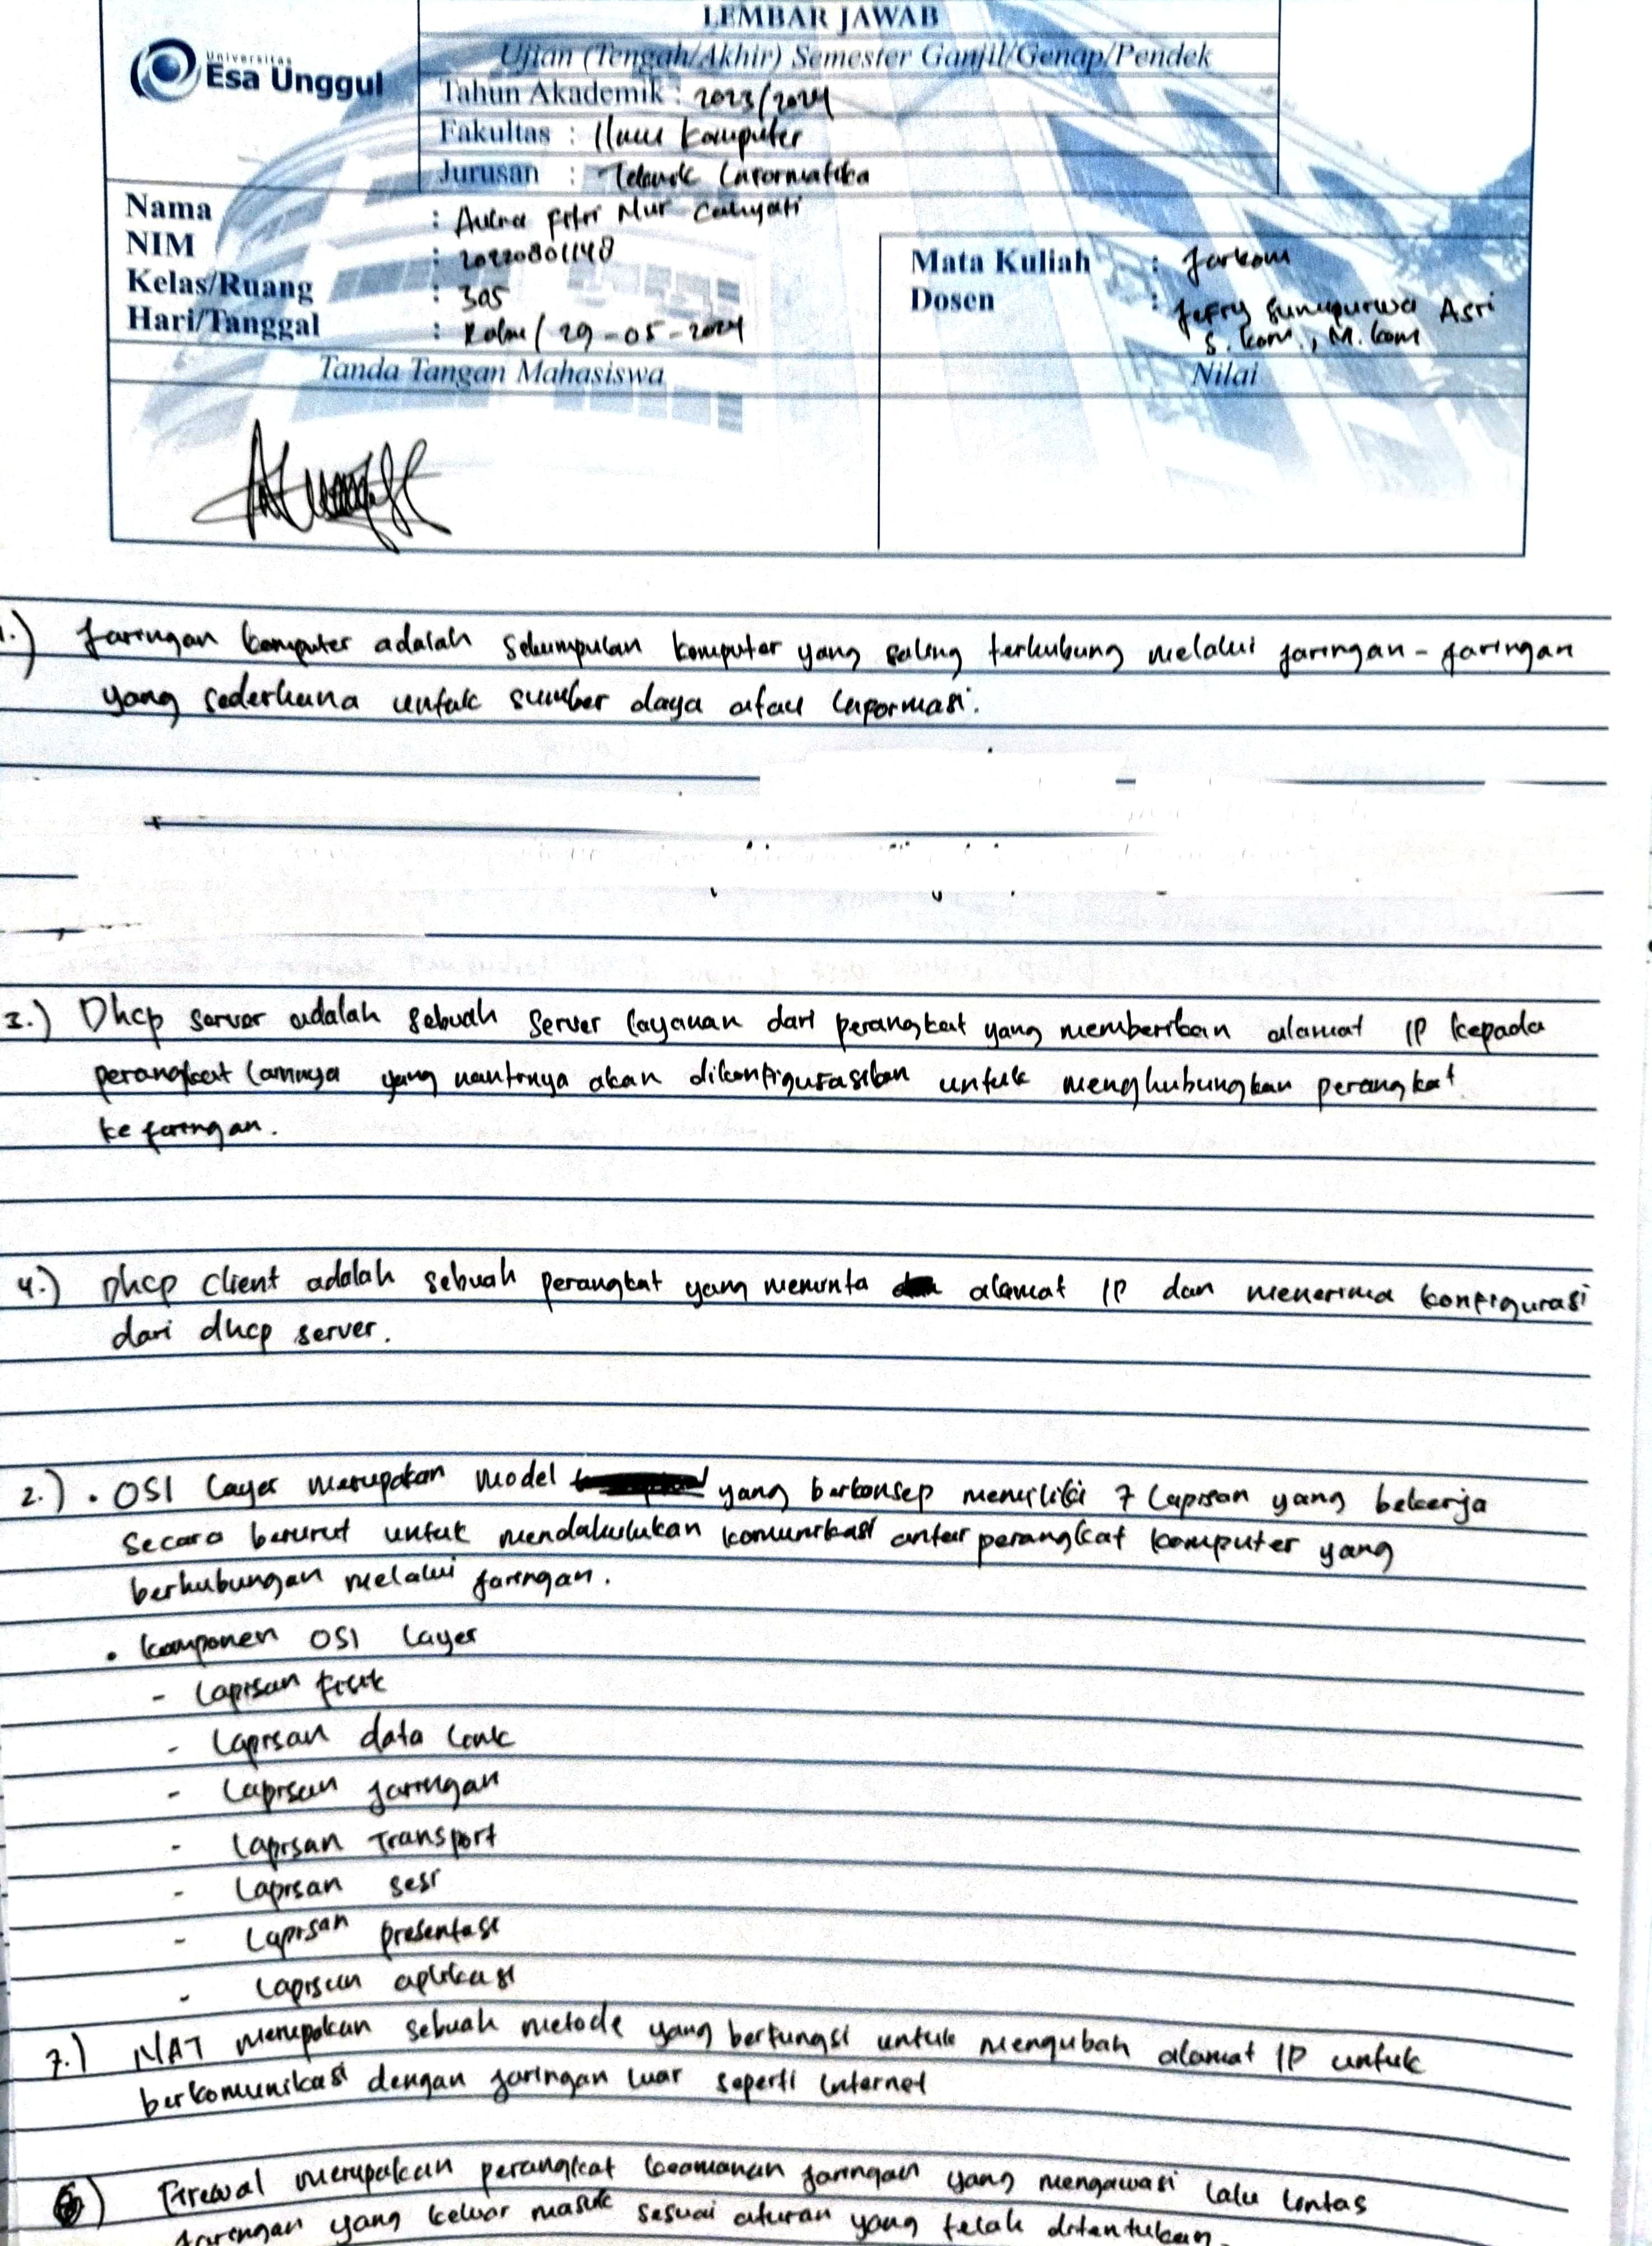 LEMBAR JAWAB
Universitas
Esa Unggul
Ujian (Tengah/Akhir) Semester Ganjil/Genap/Pendek
Tahun Akademik : 2023/2024
Fakultas : Ilmu Komputer
Jurusan : Teknik Informatika
Nama : Fitri Nur Cahyati
NIM : 20220801148
Kelas/Ruang : 305
Hari/Tanggal : Rabu / 29-05-2024
Mata Kuliah : Jarkom
Dosen : Jefry Sunupurwa Asri
S.kom., M.kom
Tanda Tangan Mahasiswa
Nilai
1.) Jaringan komputer adalah sekumpulan komputer yang saling terhubung melalui jaringan-jaringan
yang sederhana untuk sumber daya atau informasi.
3.) Dhcp server adalah sebuah server layanan dari perangkat yang memberikan alamat IP kepada
perangkat lainnya yang nantinya akan dikonfigurasikan untuk menghubungkan perangkat
ke jaringan.
4.) Dhcp client adalah sebuah perangkat yang meminta alamat IP dan menerima konfigurasi
dari dhcp server.
2.) • OSI layer merupakan model yang berkonsep memiliki 7 lapisan yang bekerja
secara berurut untuk mendahulukan komunikasi antar perangkat komputer yang
berhubungan melalui jaringan.
• komponen OSI layer
- Lapisan fisik
- Lapisan data link
- Lapisan jaringan
- Lapisan Transport
- Lapisan sesi
- Lapisan presentasi
- Lapisan aplikasi
7.) NAT merupakan sebuah metode yang berfungsi untuk mengubah alamat IP untuk
berkomunikasi dengan jaringan luar seperti internet
6) Firewal merupakan perangkat keamanan jaringan yang mengawasi lalu lintas
jaringan yang keluar masuk sesuai aturan yang telah ditentukan.